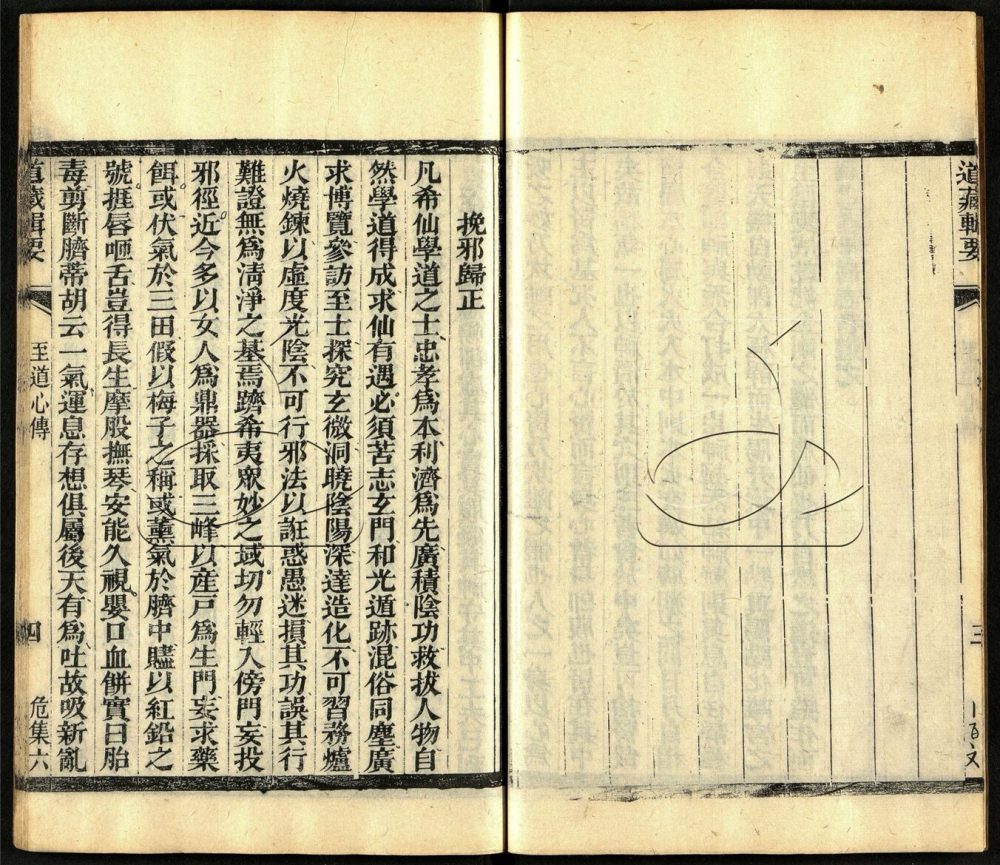 道藏輯要
三
挽邪歸正
凡希仙學道之士忠孝爲本利濟爲先廣積陰功救拔人物自
然學道得成求仙有遇必須苦志玄門和光遁跡混俗同塵廣
求博覽參訪至士探究玄微洞曉陰陽深達造化不可習務爐
火燒鍊以虛度光陰不可行邪法以誑惑愚迷損其功誤其行
難證無爲淸淨之基焉躋希夷衆妙之域切勿輕入傍門妄投
邪徑近今多以女人爲鼎器採取三峰以産戸爲生門妄求藥
餌或伏氣於三田假以梅子之稱或薰氣於臍中賺以紅鉛之
號捱唇咂舌豈得長生摩股撫琴安能久視嬰口血餠實曰胎
毒剪斷臍蒂胡云一氣運息存想俱屬後天有爲吐故吸新亂
道藏輯要
至道心傳
四
危集六